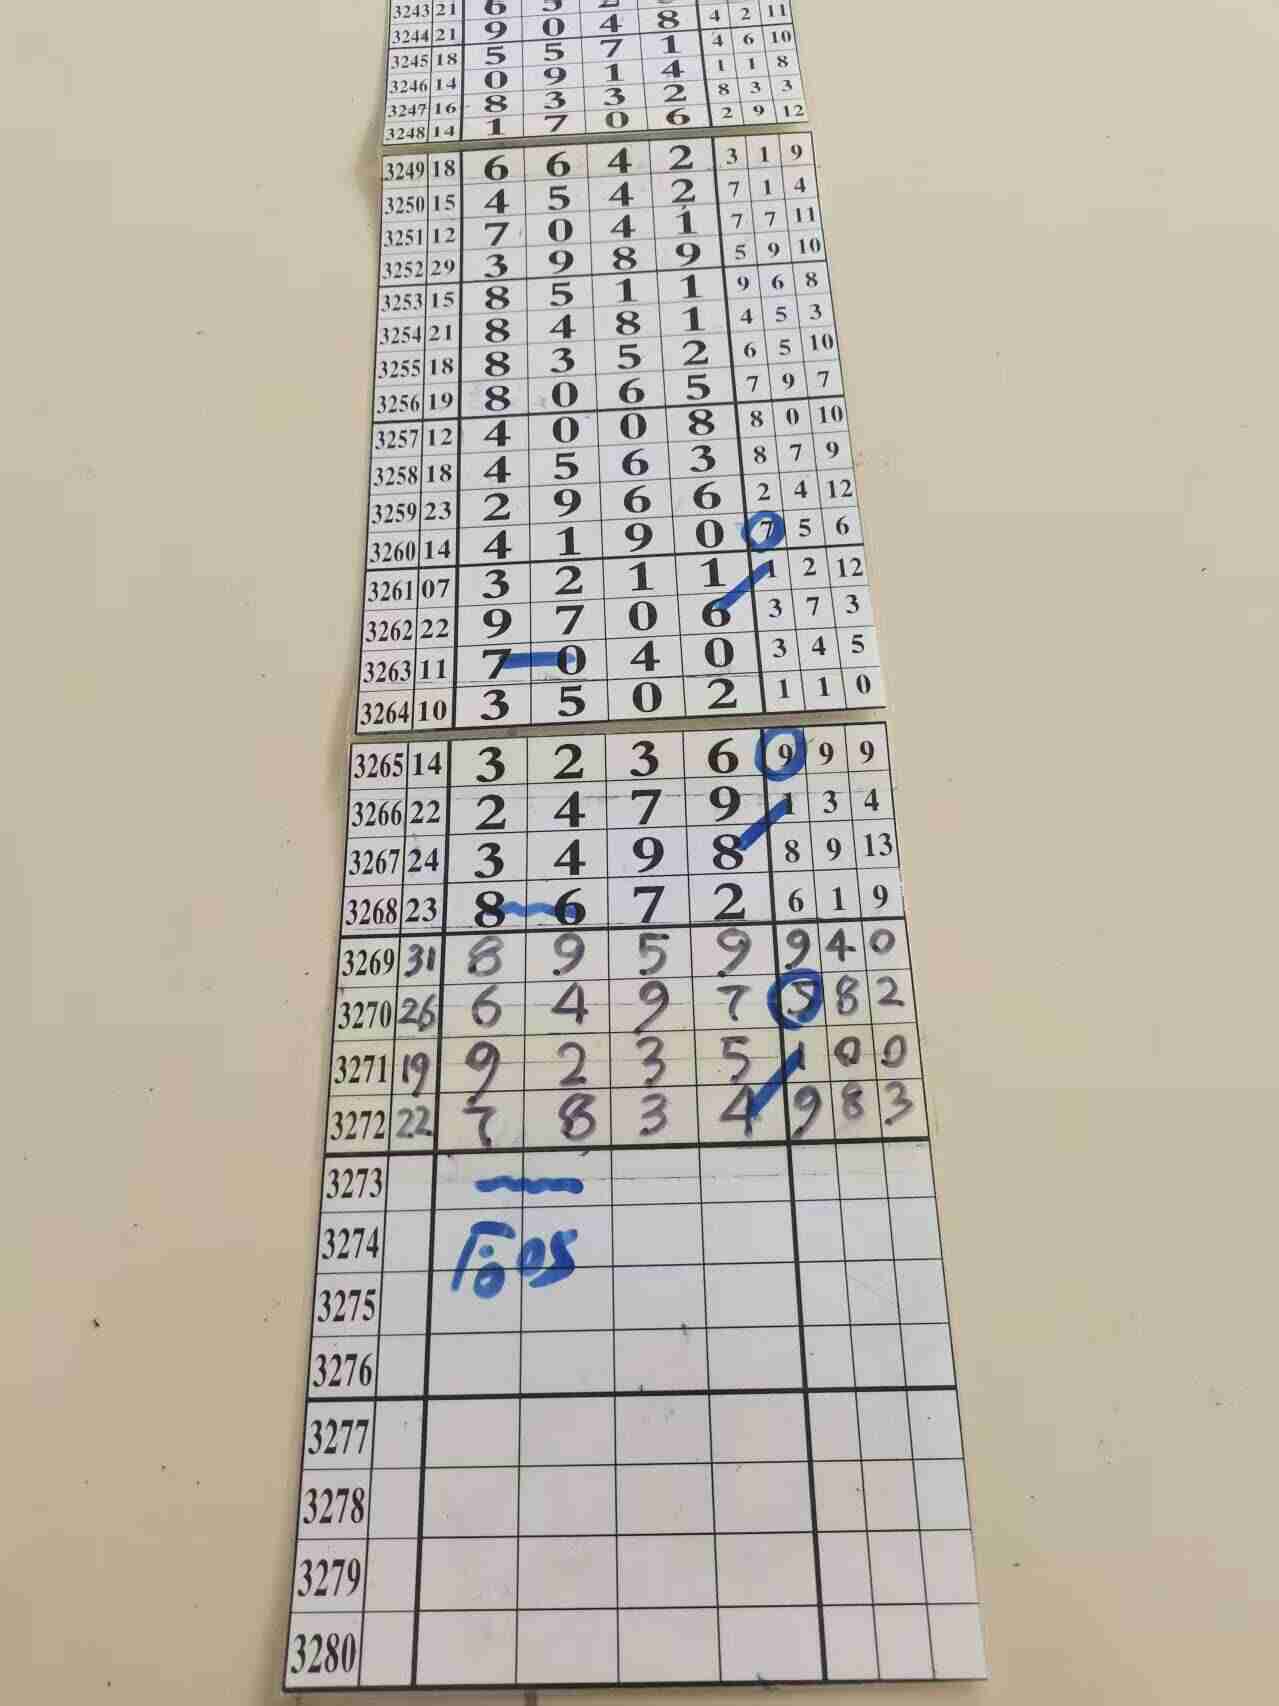 3243 21 6 5 2 
3244 21 9 0 4 8 4 2 11
3245 18 5 5 7 1 4 6 10
3246 14 0 9 1 4 1 1 8
3247 16 8 3 3 2 8 3 3
3248 14 1 7 0 6 2 9 12
3249 18 6 6 4 2 3 1 9
3250 15 4 5 4 2 7 1 4
3251 12 7 0 4 1 7 7 11
3252 29 3 9 8 9 5 9 10
3253 15 8 5 1 1 9 6 8
3254 21 8 4 8 1 4 5 3
3255 18 8 3 5 2 6 5 10
3256 19 8 0 6 5 7 9 7
3257 12 4 0 0 8 8 0 10
3258 18 4 5 6 3 8 7 9
3259 23 2 9 6 6 2 4 12
3260 14 4 1 9 0 7 5 6
3261 07 3 2 1 1 1 2 12
3262 22 9 7 0 6 3 7 3
3263 11 7 0 4 0 3 4 5
3264 10 3 5 0 2 1 1 0
3265 14 3 2 3 6 9 9 9
3266 22 2 4 7 9 1 3 4
3267 24 3 4 9 8 8 9 13
3268 23 8 6 7 2 6 1 9
3269 31 8 9 5 9 9 4 0
3270 26 6 4 9 7 5 8 2
3271 19 9 2 3 5 1 0 0
3272 22 7 8 3 4 9 8 3
3273
3274
3275
3276
3277
3278
3279
3280